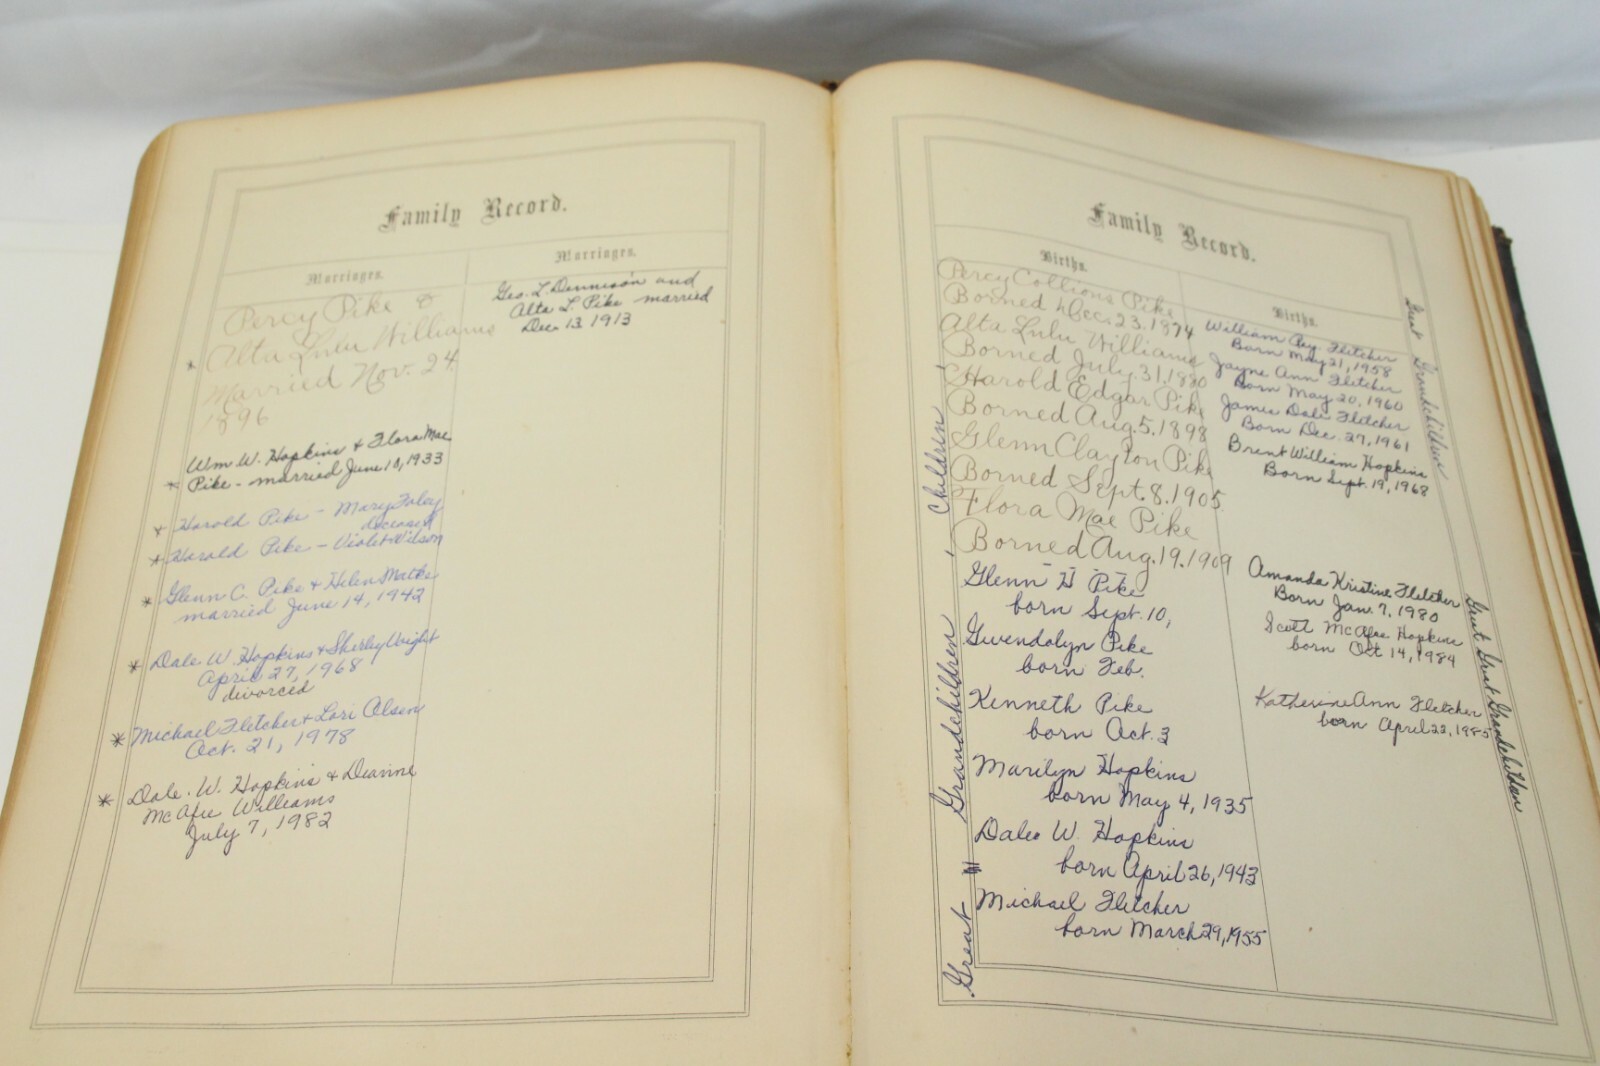 Family Record.
Marriages.
Percy Pike &
* Alta Lulu Williams
Married Nov. 24
1896
Wm W. Hopkins & Flora Mae
* Pike - married June 10, 1933
* Harold Pike - Mary Foley
deceased
* Harold Pike - Violet Wilson
* Glenn C. Pike & Helen Matke
married June 14, 1942
* Dale W Hopkins & Shirley Wright
April 27, 1968
divorced
* Michael Fletcher & Lori Olsen
Oct. 21, 1978
* Dale. W. Hopkins & Deanne
McAfee Williams
July 7, 1982
Marriages.
Geo. L Dennison and
Alta L. Pike married
Dec. 13 1913
Family Record.
Births.
Percy Collions Pike
Borned Dec. 23. 1874
Alta Lulu Williams
Borned July. 31, 1880
Harold Edgar Pike
Borned Aug. 5. 1898
Glenn Clayton Pike
Borned Sept. 8. 1905
Flora Mae Pike
Borned Aug. 19. 1909
Glenn H Pike
born Sept. 10,
Gwendolyn Pike
born Feb.
Kenneth Pike
born Oct. 3
Marilyn Hopkins
born May 4, 1935
Dale W. Hopkins
born April 26, 1943
Michael Fletcher
born March 29, 1955
Children
Grandchildren
Great
Births.
William Ray Fletcher
Born May 21, 1958
Jayne Ann Fletcher
Born May 20, 1960
James Dale Fletcher
Born Dec. 27, 1961
Brent William Hopkins
Born Sept. 19, 1968
Amanda Kristine Fletcher
Born Jan. 7, 1980
Scott McAfee Hopkins
born Oct 14, 1984
Katherine Ann Fletcher
born April 22, 1985
Great Grandchildren
Great Great Grandchildren